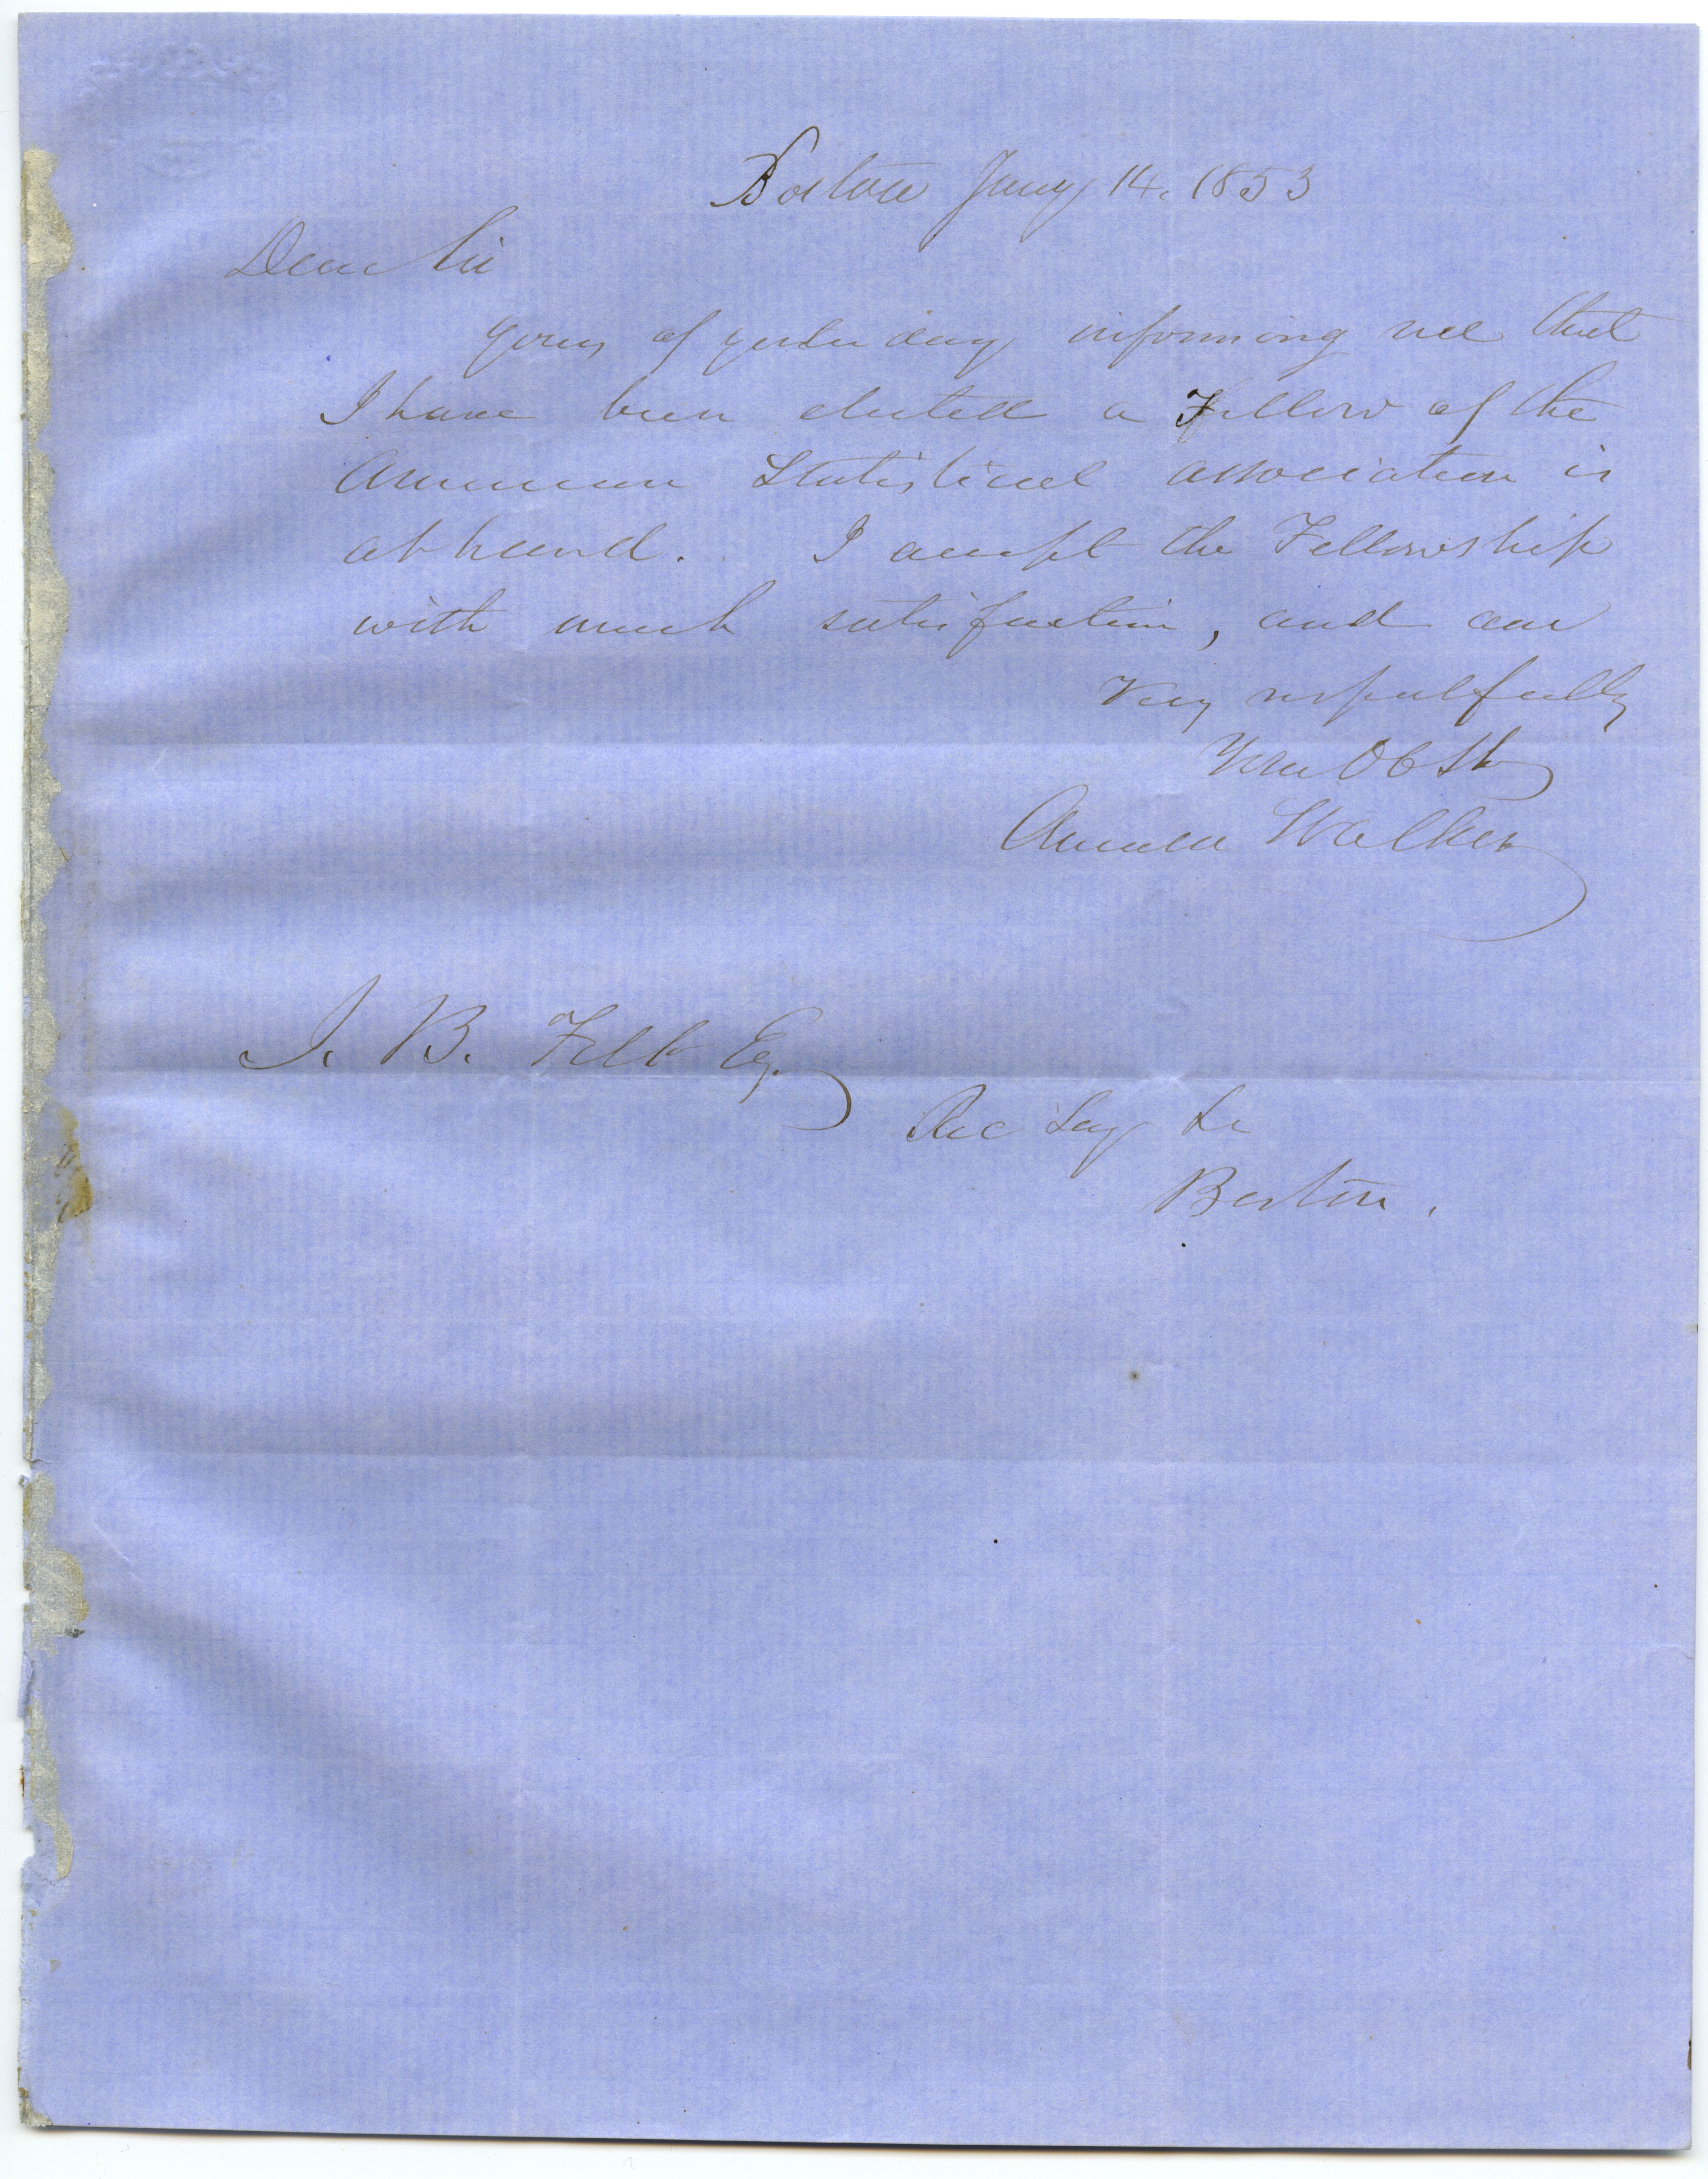 Boston Jany 14. 1853
Dear Sir
Yours of yesterday informing me that
I have been elected a Fellow of the
American Statistical Association is
at hand. I accept the Fellowship
with much satisfaction, and am
Very respectfully
Your Ob St
Amasa Walker
J. B. Felt Esq.
Rec Secy &c
Boston.